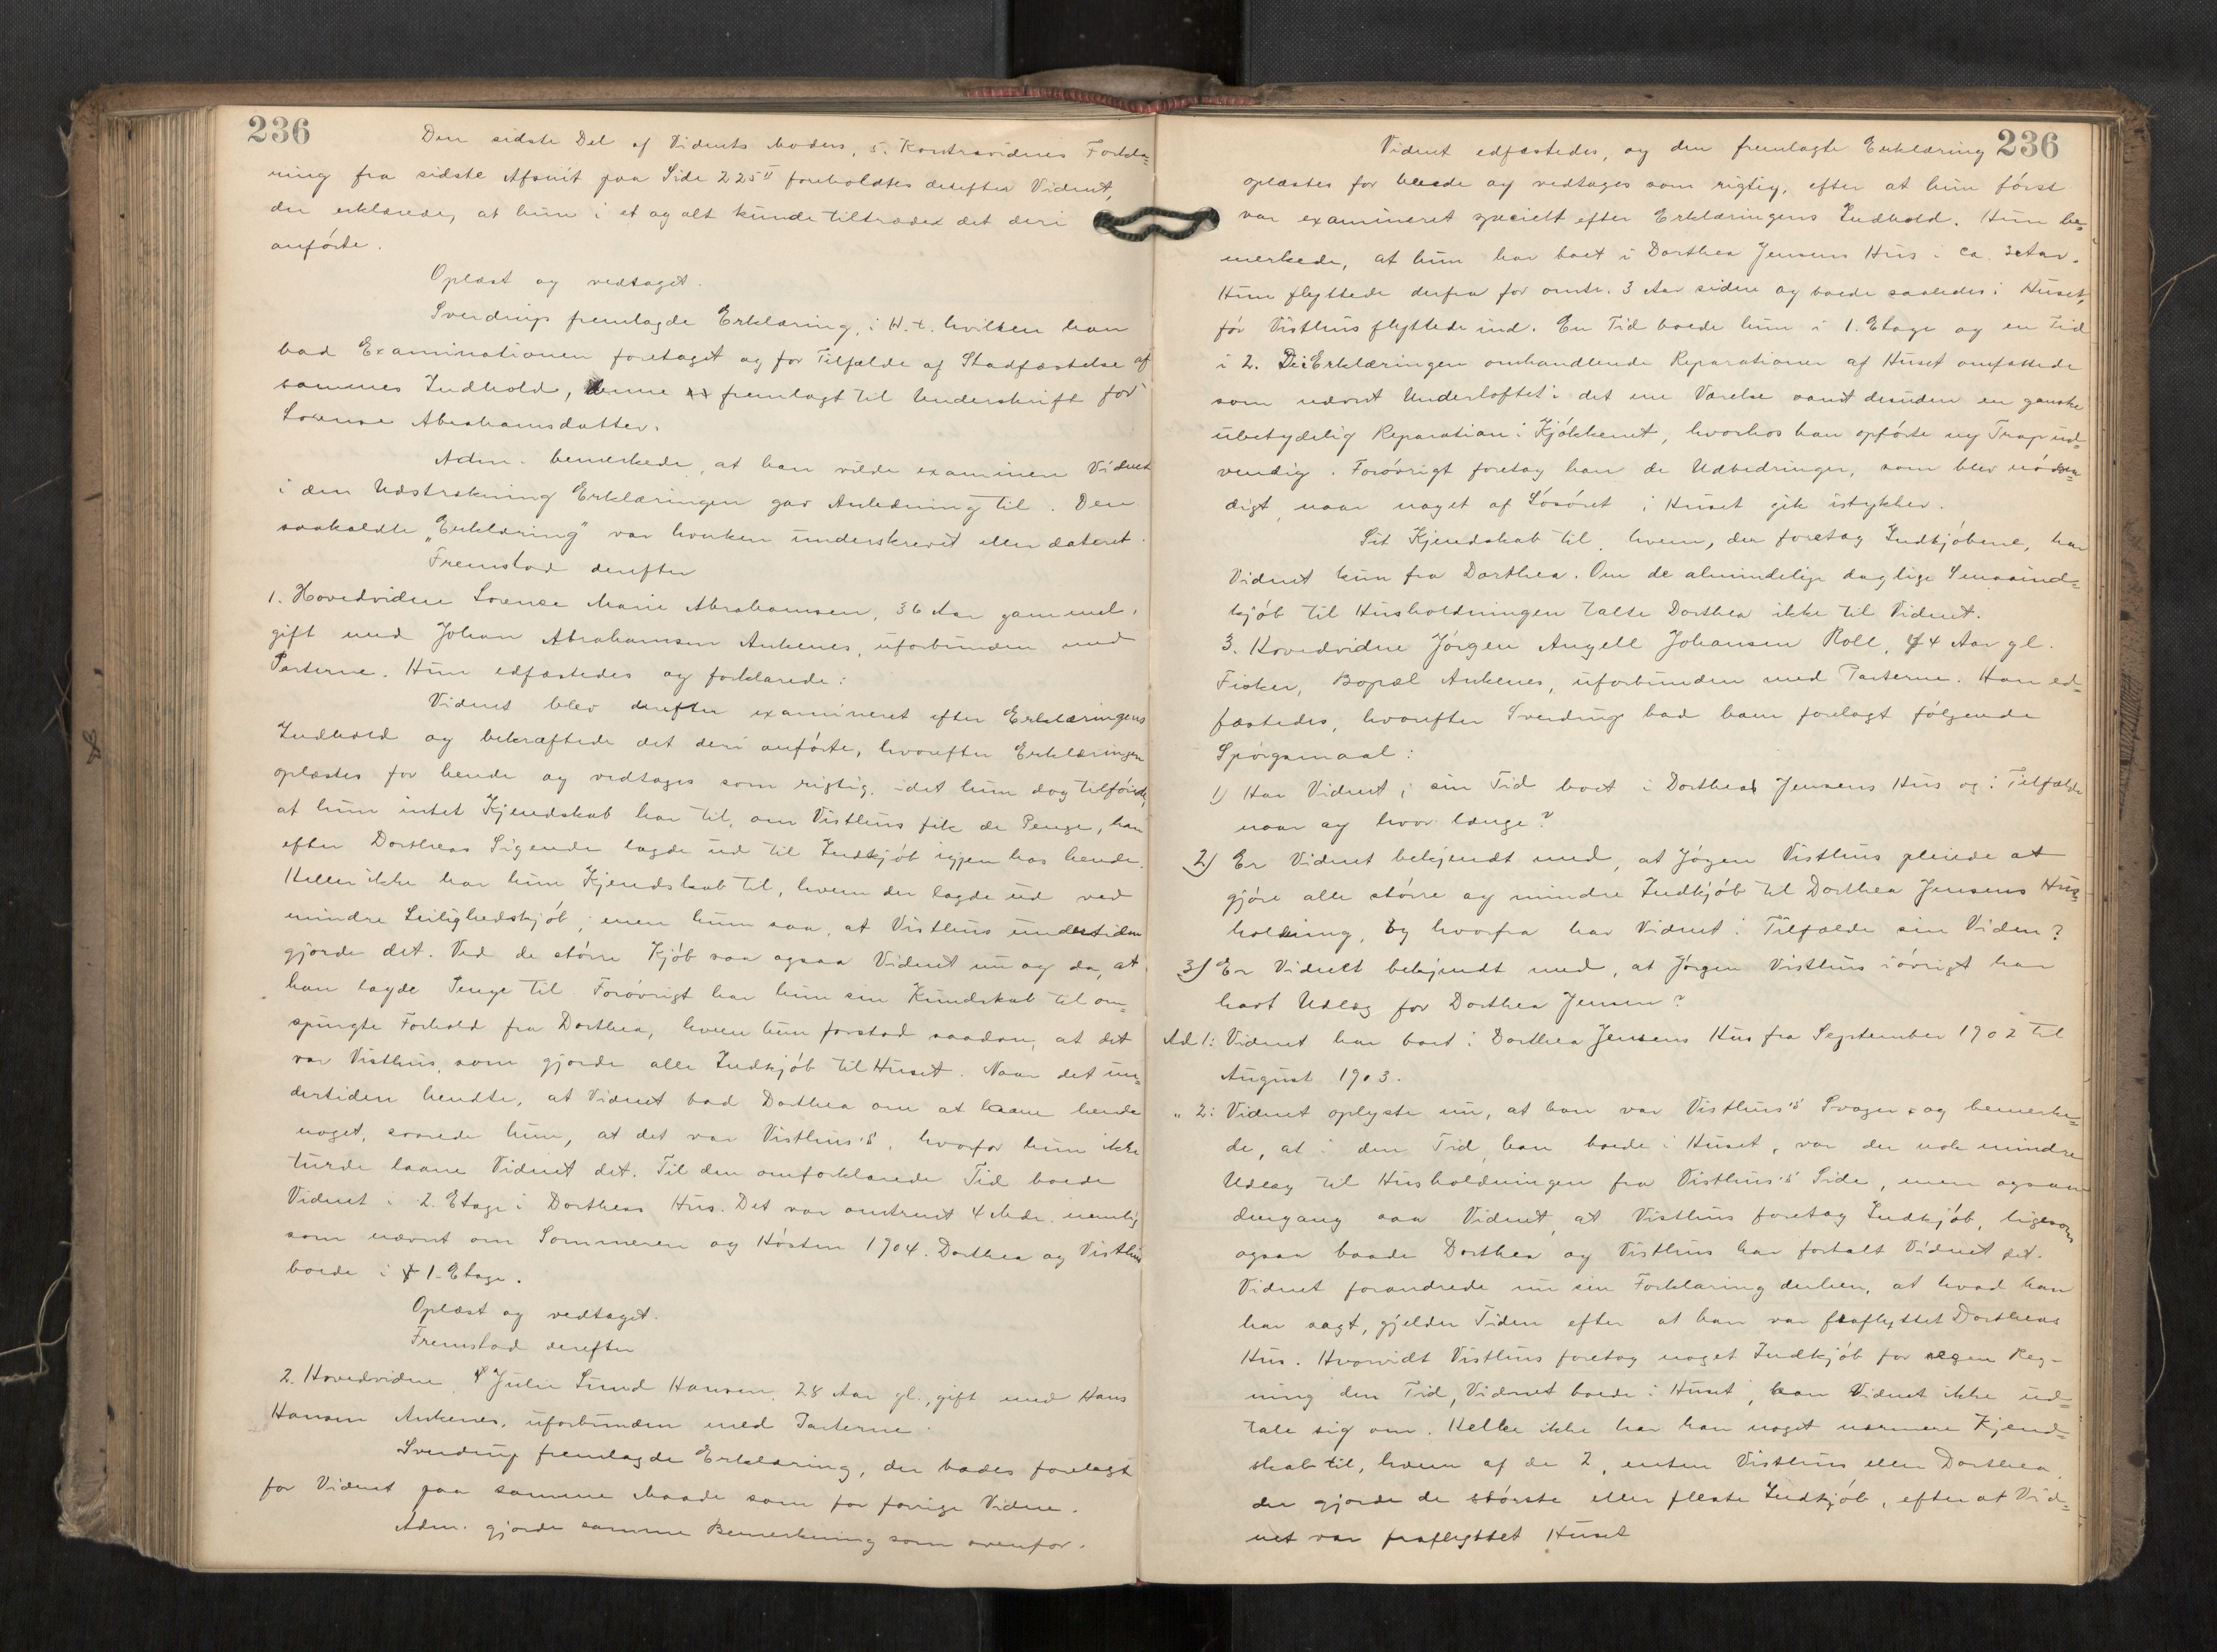 236
Den sidste Del af Vidnets Moders, 5. Kontravidnes Forkla=
ring fra sidste Afsnit paa Side 225 II foreholdtes derefter Vidnet,
der erklærede, at hun i et og alt kunde tiltræde det deri
anførte.
Oplæst og vedtaget.
Sverdrup fremlagde Erklæring, i H. t. hvilken han
bad Examinationen foretaget og for Tilfælde af Stadfæstelse af
sammes Indhold, denne fremlagt til Underskrift for
Lorense Abrahamsdatter.
Adm. bemerkede, at han vilde examinere Vidnet
i den Udstrækning Erklæringen gav Anledning til. Den
saakaldte „Erklæring" var hverken underskrevet eller dateret.
Fremstod derefter
1. Hovedvidne Lorense Marie Abrahamsen, 36 Aar gammel,
gift med Johan Abrahamsen Ankenes, uforbunden med
Parterne. Hun edfæstedes og forklarede:
Vidnet blev derefter examineret efter Erklæringens
Indhold og bekræftede det deri anførte, hvorefter Erklæringen
oplæstes for hende og vedtages som rigtig, idet hun dog tilføiede,
at hun intet Kjendskab har til, om Visthus fik de Penge, han
efter Dortheas Sigende lagde ud til Indkjøb igjen hos hende.
Heller ikke har hun Kjendskab til, hvem der lagde ud ved
mindre Leilighedskjøb, men hun saa, at Visthus undertiden
gjorde det. Ved de større Kjøb saa ogsaa Vidnet nu og da, at
han lagde Penge til. Forøvrigt har hun sin Kundskab til om=
spurgte Forhold fra Dorthea, hvem hun forstod saadan, at det
var Visthus, som gjorde alle Indkjøb til Huset. Naar det un=
dertiden hendte, at Vidnet bad Dorthea om at laane hende
noget, svarede hun, at det var Visthus's, hvorfor hun ikke
turde laane Vidnet det. Til den omforklarede Tid boede
Vidnet i 2. Etage i Dortheas Hus. Det var omtrent 4 Mdr. nemlig
som nævnt om Sommeren og Høsten 1904. Dorthea og Visthus
boede i 1. Etage.
Oplæst og vedtaget.
Fremstod derefter
2. Hovedvidne Julie Lund Hansen, 28 Aar gl., gift med Hans
Hansen Ankenes, uforbunden med Parterne.
Sverdrup fremlagde Erklæring, der bades forelagt
for Vidnet paa samme Maade som for forrige Vidne.
Adm. gjorde samme Bemerkning som ovenfor.
236
Vidnet edfæstedes, og den fremlagte Erklæring
oplæstes for hende og vedtages som rigtig, efter at hun først
var examineret specielt efter Erklæringens Indhold. Hun be=
merkede, at hun har boet i Dorthea Jensens Hus i ca. 3 Aar.
Hun flyttede derfra for omtr. 3 Aar siden og boede saaledes i Huset,
før Visthus flyttede ind. En Tid boede hun i 1. Etage og en Tid
i 2. De i Erklæringen omhandlende Reparationer af Huset omfattede
som nævnt Underloftet i det ene Værelse samt desuden en ganske
ubetydelig Reparation i Kjøkkenet, hvorhos han opførte ny Trap ud=
vendig. Forøvrigt foretog han de Udbedringer, som blev nødven=
digt, naar noget af Løsøret i Huset gik istykker.
Sit Kjendskab til, hvem, der foretog Indkjøbene, har
Vidnet kun fra Dorthea. Om de almindelige daglige Smaaind=
kjøb til Husholdningen talte Dorthea ikke til Vidnet.
3. Hovedvidne Jørgen Angell Johansen Roll, 44 Aar gl.
Fisker, Bopæl Ankenes, uforbunden med Parterne. Han ed=
fæstedes, hvorefter Sverdrup bad ham forelagt følgende
Spørgsmaal:
1) Har Vidnet i sin Tid boet i Dorthea Jensens Hus og i Tilfælde
naar og hvor længe?
2) Er Vidnet bekjendt med, at Jørgen Visthus pleiede at
gjøre alle større og mindre Indkjøb til Dorthea Jensens Hus=
holdning, og hvorfra har Vidnet i Tilfælde sin Viden?
3) Er Vidnet bekjendt med, at Jørgen Visthus iøvrigt har
havt Udlæg for Dorthea Jensen?
Ad 1: Vidnet har boet i Dorthea Jensens Hus fra September 1902 til
August 1903.
" 2: Vidnet oplyste nu, at han var Visthus's Svoger og bemerke=
de, at i den Tid, han boede i Huset, var der nok mindre
Udlæg til Husholdningen fra Visthus's Side, men ogsaa
dengang saa Vidnet, at Visthus foretog Indkjøb, ligesom
ogsaa baade Dorthea og Visthus har fortalt Vidnet det.
Vidnet forandrede nu sin Forklaring derhen, at hvad han
har sagt, gjelder Tiden efter at han var fraflyttet Dortheas
Hus. Hvorvidt Visthus foretog noget Indkjøb for egen Reg=
ning den Tid, Vidnet boede i Huset, kan Vidnet ikke ud=
tale sig om. Heller ikke har han noget nærmere Kjend=
skab til, hvem af de 2, enten Visthus eller Dorthea,
der gjorde de største eller fleste Indkjøb, efter at Vid=
net var fraflyttet Huset